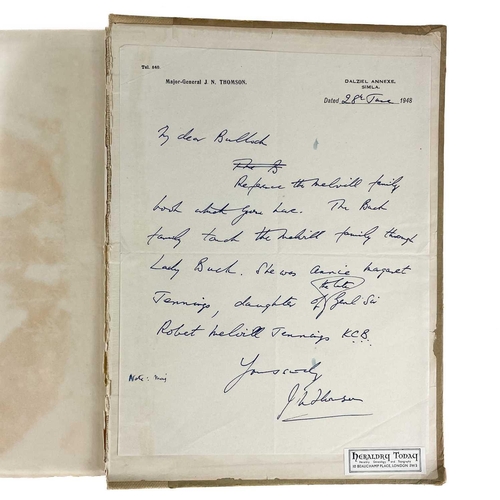 Tel. 840
Major-General J. N. THOMSON.
DALZIEL ANNEXE,
SIMLA.
Dated 28th June 1948
My dear Bulloch
The B
Reference the Melvill family
book which you have. The Buck
family touch the Melvill family through
Lady Buck. She was Annie Margaret
Jennings, daughter of the late Genl Sir
Robert Melvill Jennings K.C.B.
Yours sincerely
J N Thomson
Note:
HERALDRY TODAY
Heraldry Genealogy and Topography
10 BEAUCHAMP PLACE, LONDON SW3